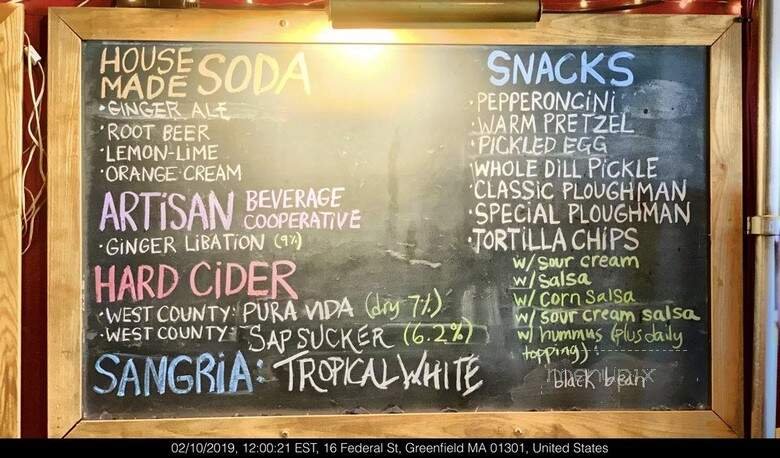 HOUSE MADE SODA
•GINGER ALE
•ROOT BEER
•LEMON-LIME
•ORANGE CREAM
ARTISAN BEVERAGE COOPERATIVE
•GINGER LIBATION (9%)
HARD CIDER
•WEST COUNTY: PURA VIDA (dry 7%)
•WEST COUNTY: SAP SUCKER (6.2%)
SANGRIA: TROPICAL WHITE
SNACKS
•PEPPERONCINI
•WARM PRETZEL
•PICKLED EGG
•WHOLE DILL PICKLE
•CLASSIC PLOUGHMAN
•SPECIAL PLOUGHMAN
•TORTILLA CHIPS
w/ sour cream
w/ salsa
w/ corn salsa
w/ sour cream salsa
w/ hummus (plus daily
topping):
black bean
menupix
02/10/2019, 12:00:21 EST, 16 Federal St, Greenfield MA 01301, United States